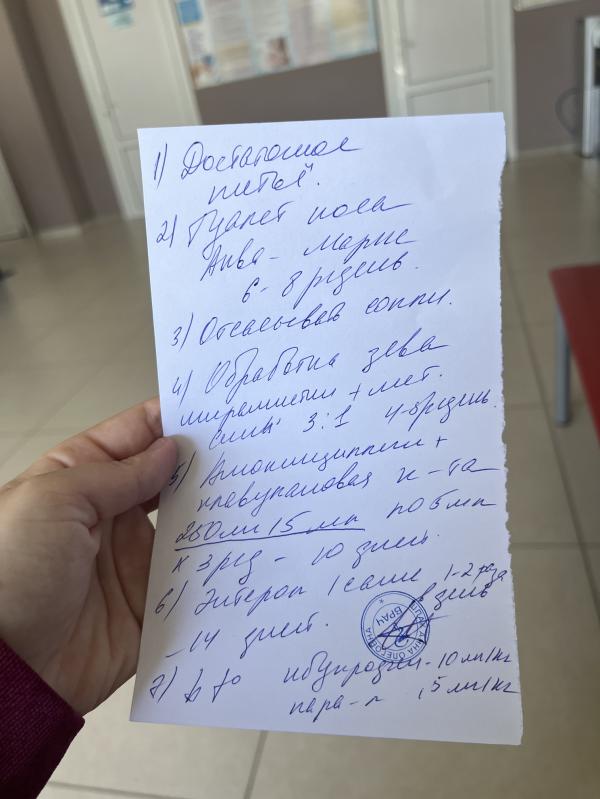 1) Достаточное
питьё.
2) Туалет носа
Аква-Марис
6-8 р/день.
3) Отсасывать сопли.
4) Обработка зева
мирамистин + мет.
синь 3:1 4-6 р/день.
5) Амоксициллин +
клавулановая к-та
250 мг/5 мл по 5 мл
х 3 р/д - 10 дней.
6) Энтерол 1 саше 1-2 раза
в день
- 14 дней.
ВРАЧ
ОЛЕГОВНА
7) ибупрофен - 10 мг/кг
пара-л , 5 мг/кг